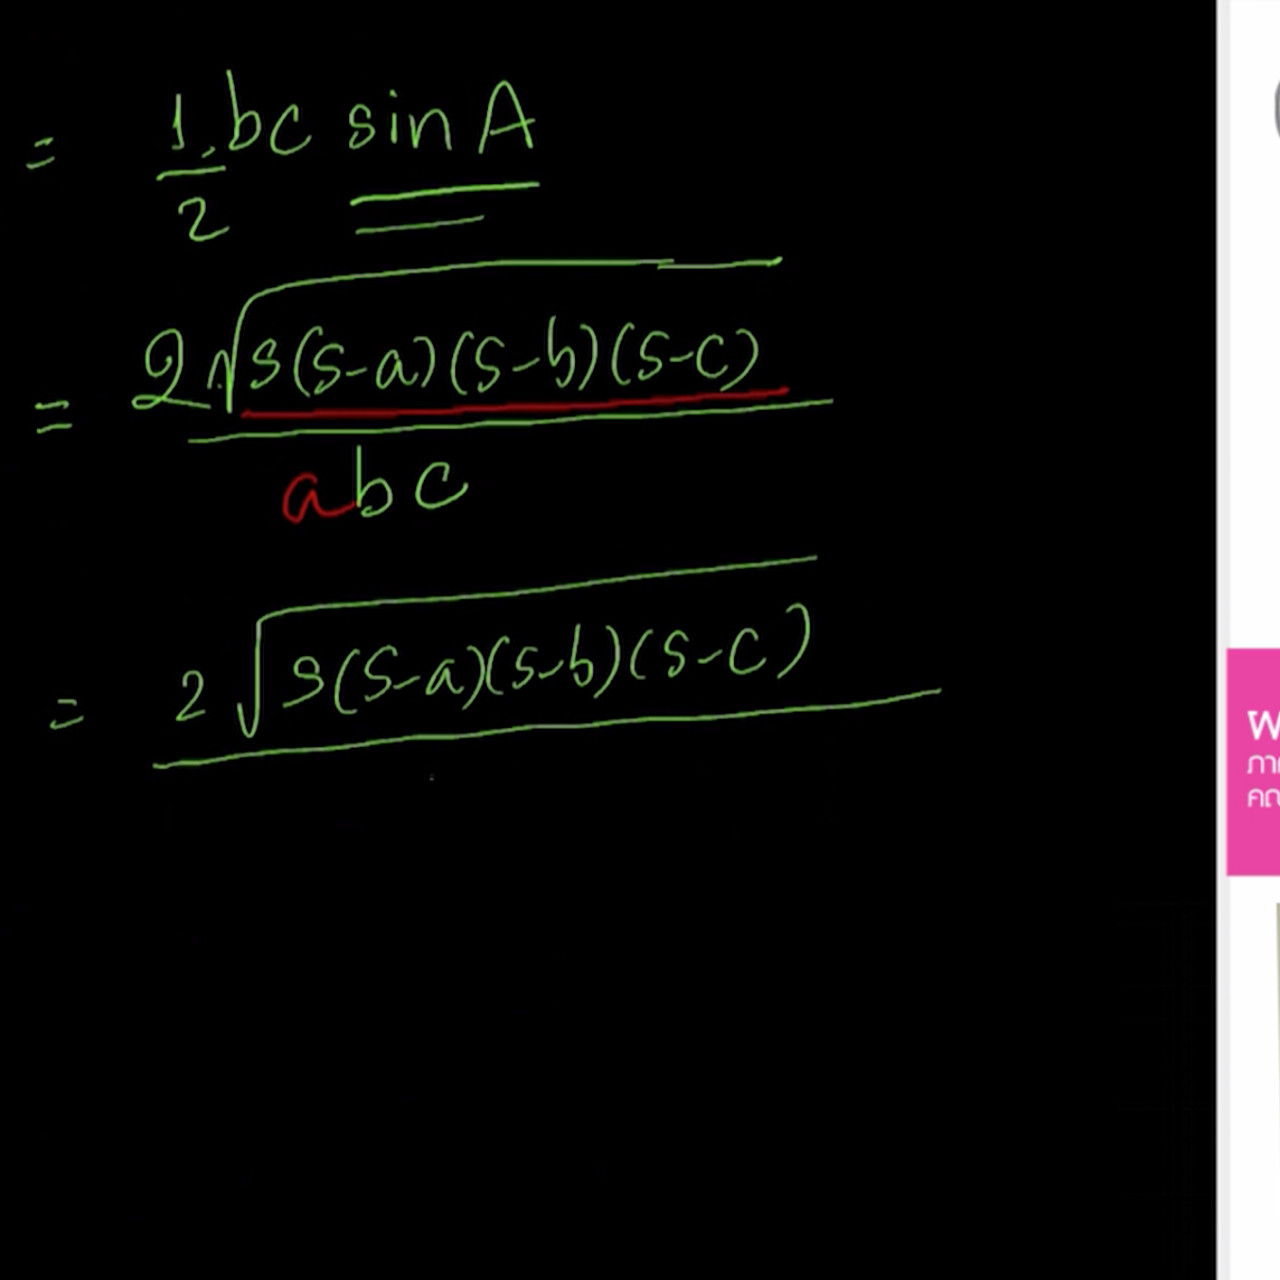 = 1/2 bc sin A
= 2√s(s-a)(s-b)(s-c) / abc
= 2√s(s-a)(s-b)(s-c)